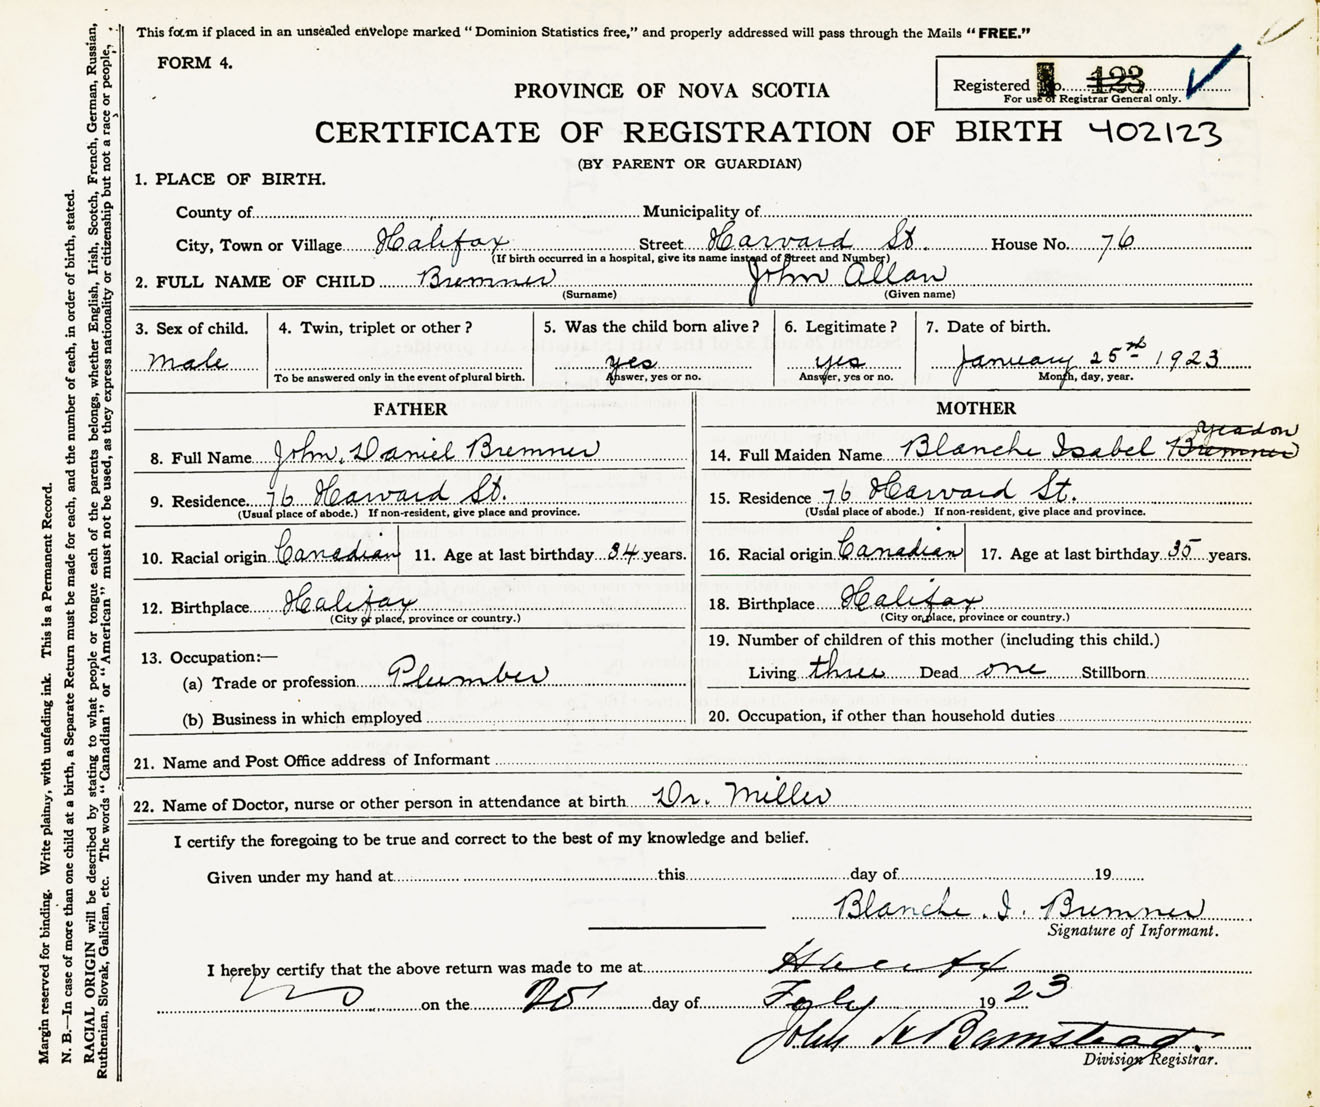 This form if placed in an unsealed envelope marked "Dominion Statistics free," and properly addressed will pass through the Mails "FREE."
FORM 4.
Registered No. 123
For use of Registrar General only.
PROVINCE OF NOVA SCOTIA
CERTIFICATE OF REGISTRATION OF BIRTH 402123
(BY PARENT OR GUARDIAN)
1. PLACE OF BIRTH.
County of Municipality of
City, Town or Village Halifax Street Harvard St. House No. 76
(If birth occurred in a hospital, give its name instead of Street and Number)
2. FULL NAME OF CHILD Bremner John Allan
(Surname) (Given name)
3. Sex of child. 4. Twin, triplet or other? 5. Was the child born alive? 6. Legitimate? 7. Date of birth.
male yes yes January 25th 1923
To be answered only in the event of plural birth. Answer, yes or no. Answer, yes or no. Month, day, year.
FATHER
8. Full Name John Daniel Bremner
9. Residence 76 Harvard St.
(Usual place of abode.) If non-resident, give place and province.
10. Racial origin Canadian 11. Age at last birthday 34 years.
12. Birthplace Halifax
(City or place, province or country.)
13. Occupation:—
(a) Trade or profession Plumber
(b) Business in which employed
MOTHER
Yeadon
14. Full Maiden Name Blanche Isabel Bremner
15. Residence 76 Harvard St.
(Usual place of abode.) If non-resident, give place and province.
16. Racial origin Canadian 17. Age at last birthday 35 years.
18. Birthplace Halifax
(City or place, province or country.)
19. Number of children of this mother (including this child.)
Living three Dead one Stillborn
20. Occupation, if other than household duties
21. Name and Post Office address of Informant
22. Name of Doctor, nurse or other person in attendance at birth Dr. Miller
I certify the foregoing to be true and correct to the best of my knowledge and belief.
Given under my hand at this day of 19
Blanche I. Bremner
Signature of Informant.
I hereby certify that the above return was made to me at Halifax
on the day of Feby 1923
John H Barnstead.
Division Registrar.
Margin reserved for binding. Write plainly, with unfading ink. This is a Permanent Record.
N. B.—In case of more than one child at a birth, a Separate Return must be made for each, and the number of each, in order of birth, stated.
RACIAL ORIGIN will be described by stating to what people or tongue each of the parents belongs, whether English, Irish, Scotch, French, German, Russian,
Ruthenian, Slovak, Galician, etc. The words "Canadian" or "American" must not be used, as they express nationality or citizenship but not a race or people.